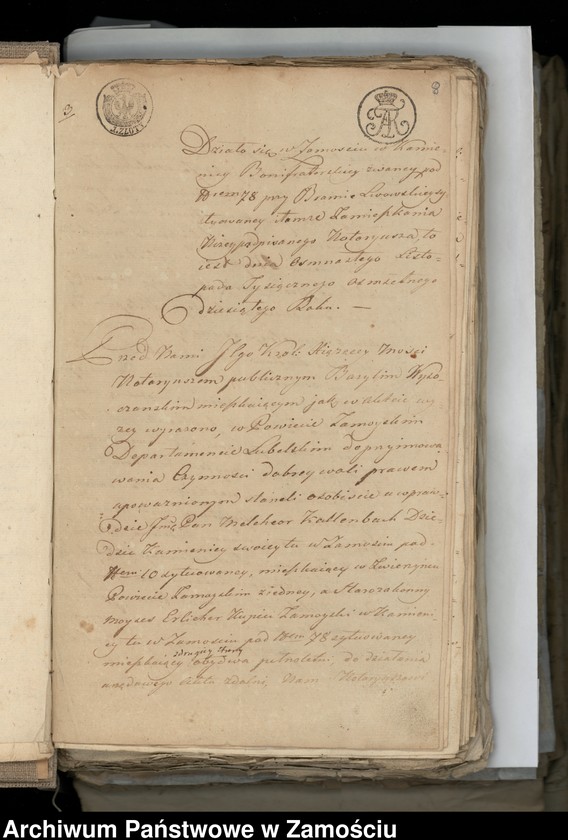 3
8
1.ZŁOTY
Działo się w Zamosciu w Kamie-
nicy Bonifraterskiey zwaney pod
Nrem 78 przy Bramie Lwowskiey sy
tuowaney tamże Zamieszkania
Niżey podpisanego Notaryusza, to
iest dnia Osmnastego Listo-
pada Tysiącznego osmsetnego
dziesiątego Roku. —
Przed Nami Jego Król: Xiążęcey Mości
Notaryuszem publicznym Bazylim Wyso-
czanskim mieszkaiącym jak w Akcie wy
żey wyrażono, w Powiecie Zamoyskim
Departamencie Lubelskim do przyimowa
wania Czynności dobrey woli prawem
upoważnionym staneli osobiscie a wpraw-
dzie Jmć Pan Melchior Kallenbach Dzie-
dzic Kamienicy swoiey tu w Zamosciu pod
Nrem 10 sytuowaney, mieszkaiący w Zwierzyncu
Powiecie Zamoyskim z iedney, a Starozakonny
Moyzes Erlicher Kupiec Zamoyski w Kamieni-
cy tu w Zamosciu pod Nrem 78 sytuowaney
z drugiey strony
mieszkaiący obydwa pełnoletni, do działania
urzędowego Aktu zdolni, Nam Notaryuszowi
Archiwum Państwowe w Zamościu